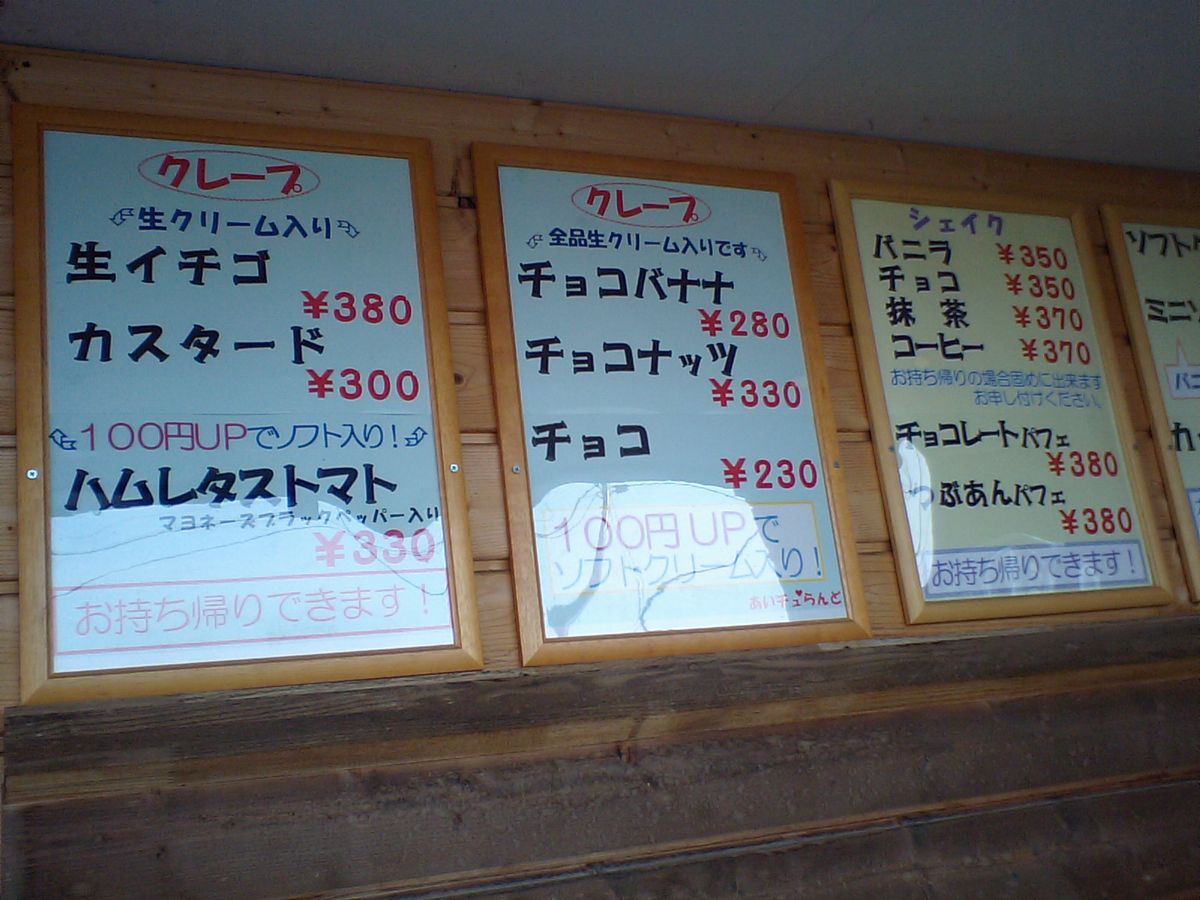 クレープ
生クリーム入り
生イチゴ
¥380
カスタード
¥300
100円UPでソフト入り!
ハムレタストマト
マヨネーズブラックペッパー入り
¥330
お持ち帰りできます!
クレープ
全品生クリーム入りです
チョコバナナ
¥280
チョコナッツ
¥330
チョコ
¥230
100円UPで
ソフトクリーム入り!
あいチュらんど
シェイク
バニラ ¥350
チョコ ¥350
抹茶 ¥370
コーヒー ¥370
お持ち帰りの場合固めに出来ます
お申し付けください。
チョコレートパフェ
¥380
つぶあんパフェ
¥380
お持ち帰りできます!
ソフト
ミニソ
バニ
カ